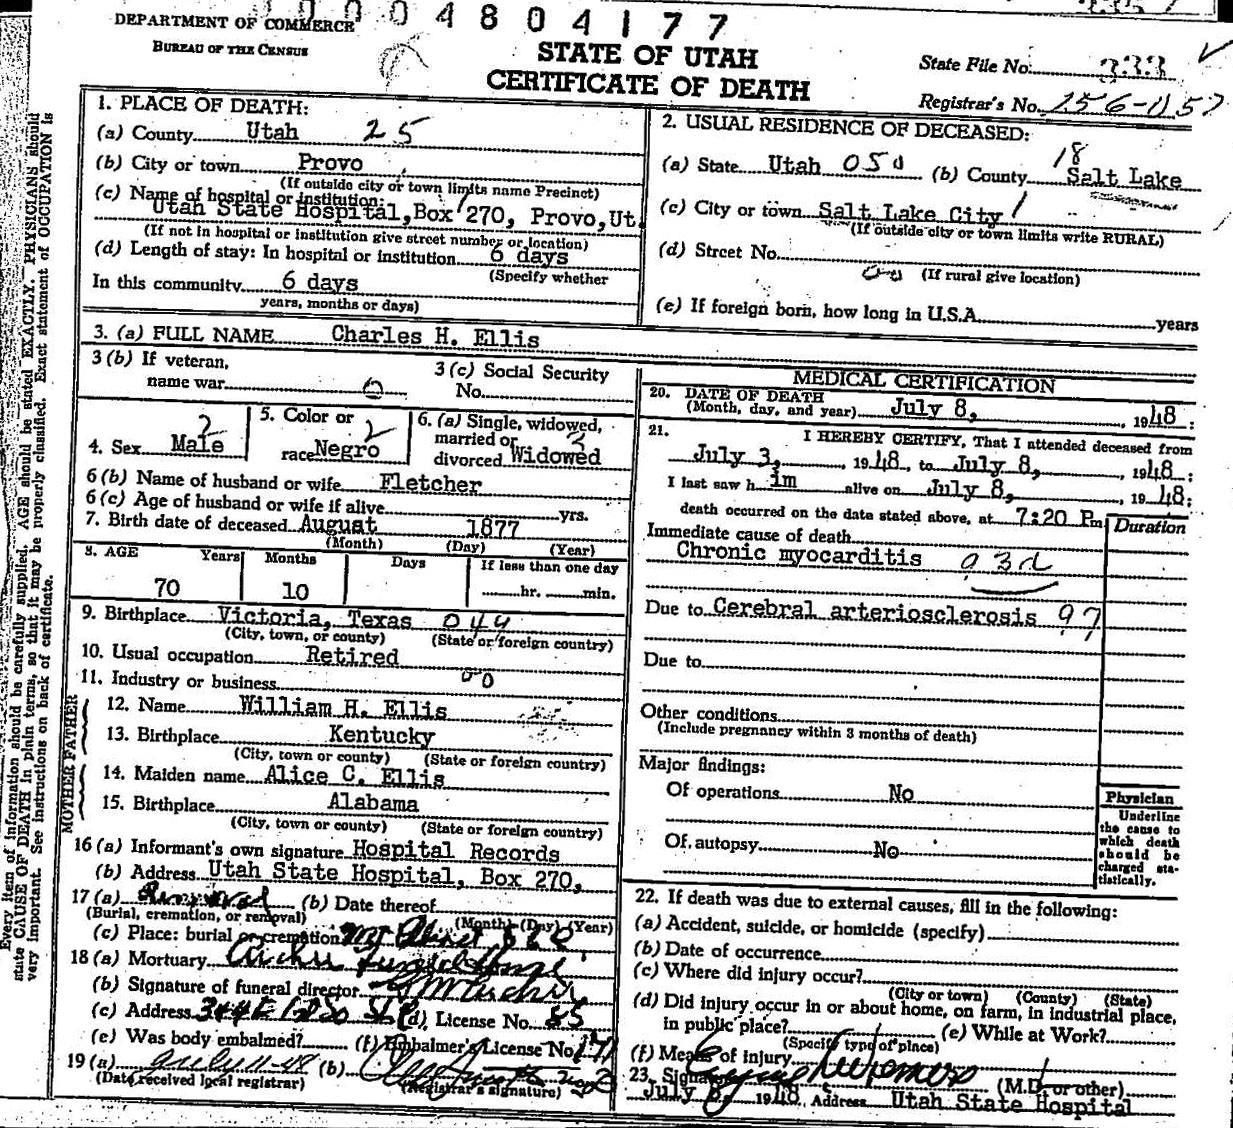 0004804177
DEPARTMENT OF COMMERCE
BUREAU OF THE CENSUS
STATE OF UTAH
CERTIFICATE OF DEATH
State File No. 333
Registrar's No. 256-057
1. PLACE OF DEATH:
(a) County Utah 25
(b) City or town Provo
(If outside city or town limits name Precinct)
(c) Name of hospital or institution:
Utah State Hospital, Box 270, Provo, Ut.
(If not in hospital or institution give street number or location)
(d) Length of stay: In hospital or institution 6 days
(Specify whether
In this community 6 days
years, months or days)
2. USUAL RESIDENCE OF DECEASED:
18
(a) State Utah 050 (b) County Salt Lake
(c) City or town Salt Lake City 1
(If outside city or town limits write RURAL)
(d) Street No.
(If rural give location)
(e) If foreign born, how long in U.S.A. years
3. (a) FULL NAME Charles H. Ellis
3 (b) If veteran,
name war 0
3 (c) Social Security
No.
4. Sex Male 2
5. Color or
race Negro 2
6. (a) Single, widowed,
married or
divorced Widowed 3
6 (b) Name of husband or wife Fletcher
6 (c) Age of husband or wife if alive yrs.
7. Birth date of deceased August 1877
(Month) (Day) (Year)
8. AGE Years Months Days If less than one day
70 10 hr. min.
9. Birthplace Victoria, Texas 044
(City, town, or county) (State or foreign country)
10. Usual occupation Retired
11. Industry or business 00
FATHER
12. Name William H. Ellis
13. Birthplace Kentucky
(City, town or county) (State or foreign country)
MOTHER
14. Maiden name Alice C. Ellis
15. Birthplace Alabama
(City, town or county) (State or foreign country)
16 (a) Informant's own signature Hospital Records
(b) Address Utah State Hospital, Box 270,
17 (a) (b) Date thereof
(Burial, cremation, or removal) (Month) (Day) (Year)
(c) Place: burial or cremation Mt Olivet SLC
18 (a) Mortuary Archer Funeral Home
(b) Signature of funeral director
(c) Address (d) License No. 85
(e) Was body embalmed? (f) Embalmer's License No. 171
19 (a) July 11-48 (b)
(Date received local registrar) (Registrar's signature)
MEDICAL CERTIFICATION
20. DATE OF DEATH
(Month, day, and year) July 8, 1948;
21. I HEREBY CERTIFY, That I attended deceased from
July 3, 1948, to July 8, 1948;
I last saw him alive on July 8, 1948;
death occurred on the date stated above, at 7:20 Pm
Duration
Immediate cause of death
Chronic myocarditis 93d
Due to Cerebral arteriosclerosis 97
Due to
Other conditions
(Include pregnancy within 3 months of death)
Major findings:
Of operations No
Of autopsy No
Physician
Underline
the cause to
which death
should be
charged sta-
tistically.
22. If death was due to external causes, fill in the following:
(a) Accident, suicide, or homicide (specify)
(b) Date of occurrence
(c) Where did injury occur?
(City or town) (County) (State)
(d) Did injury occur in or about home, on farm, in industrial place,
in public place? (e) While at Work?
(Specify type of place)
(f) Means of injury
23. Signature (M.D. or other)
July 8, 1948, Address Utah State Hospital
Every item of information should be carefully supplied. AGE should be stated EXACTLY. PHYSICIANS should
state CAUSE OF DEATH in plain terms, so that it may be properly classified. Exact statement of OCCUPATION is
very important. See instructions on back of certificate.